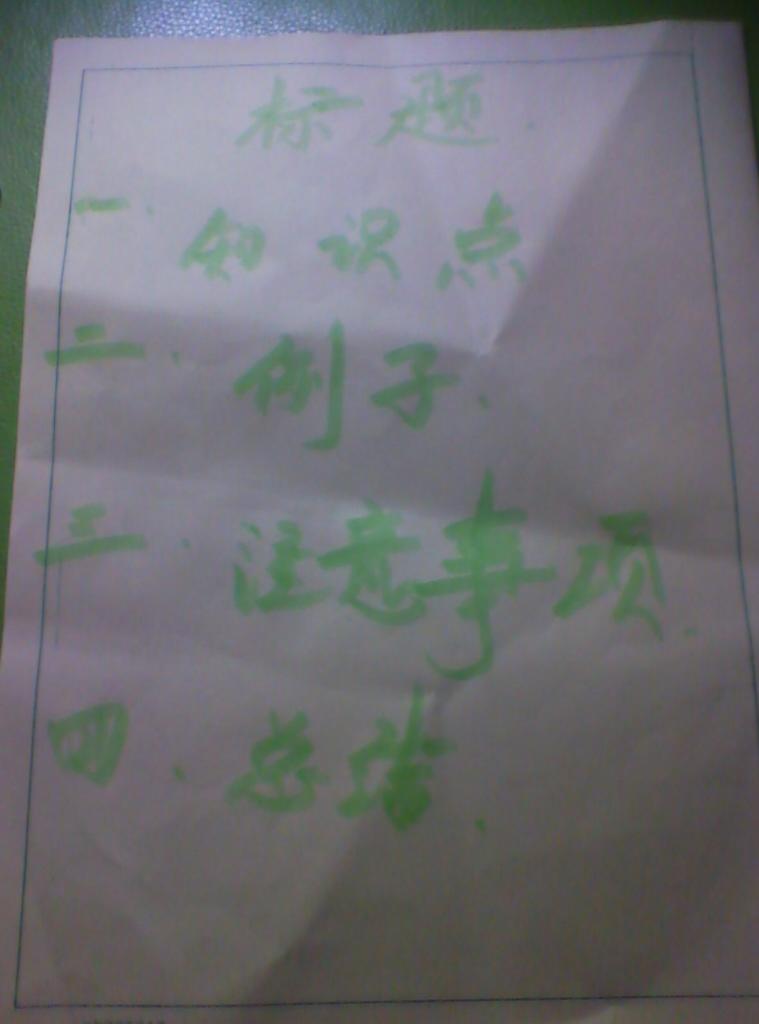 标题.
一. 知识点
二. 例子.
三. 注意事项.
四. 总结.